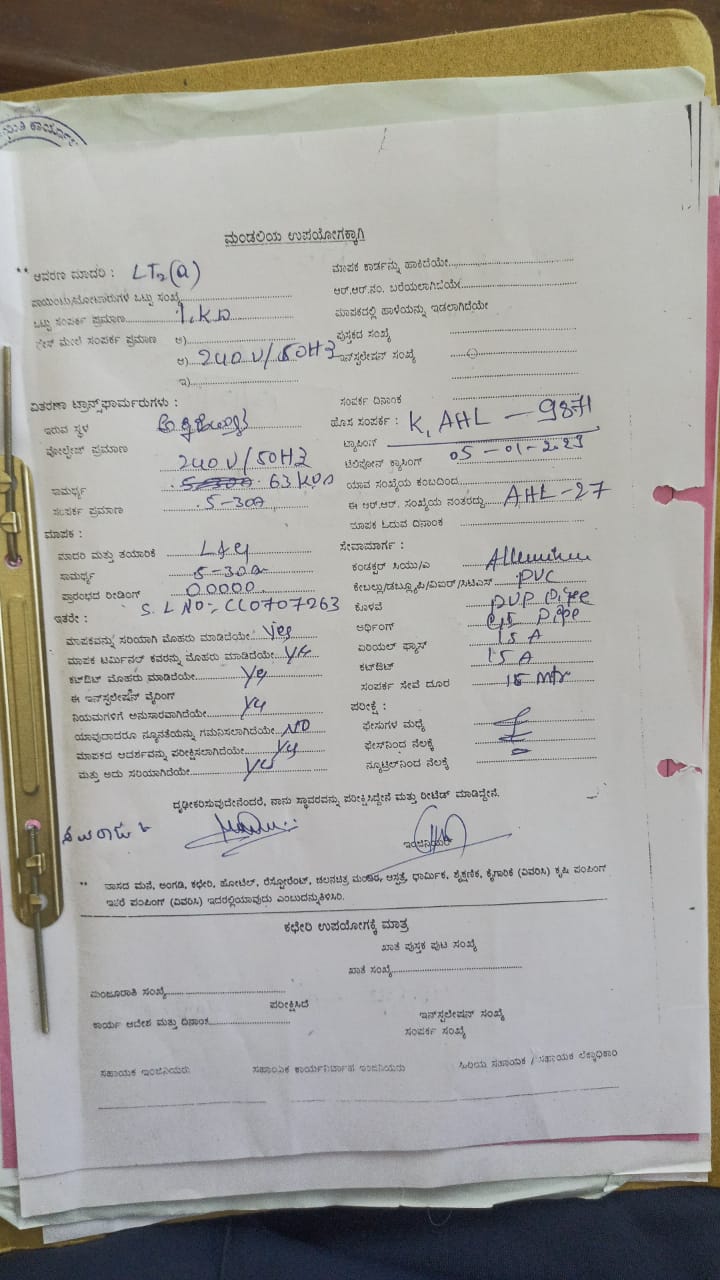 ಮಂಡಲಿಯ ಉಪಯೋಗಕ್ಕಾಗಿ
** ಆವರಣ ಮಾದರಿ : LT2(a)
ಒಟ್ಟು ಸಂಪರ್ಕ ಪ್ರಮಾಣ
ಸಂಪರ್ಕ ಪ್ರಮಾಣ ಅ)
ಆ) 240 V/50HZ
ಇ)
ವಿತರಣಾ ಟ್ರಾನ್ಸ್‌ಫಾರ್ಮರುಗಳು :
ಇರುವ ಸ್ಥಳ
ವೋಲ್ಟೇಜ್ ಪ್ರಮಾಣ 240 V/50HZ
ಸಾಮರ್ಥ್ಯ 63
ಸಂಪರ್ಕ ಪ್ರಮಾಣ 5-30A
ಮಾಪಕ :
ಮಾದರಿ ಮತ್ತು ತಯಾರಿಕೆ
ಸಾಮರ್ಥ್ಯ 5-30A
ಪ್ರಾರಂಭದ ರೀಡಿಂಗ್ 00000
ಇತರೇ : S.L NO:- CC0707263
ಮಾಪಕವನ್ನು ಸರಿಯಾಗಿ ಮೊಹರು ಮಾಡಿದೆಯೇ Yes
ಮಾಪಕ ಟರ್ಮಿನಲ್ ಕವರನ್ನು ಮೊಹರು ಮಾಡಿದೆಯೇ Yes
ಕಟ್‌ಔಟ್ ಮೊಹರು ಮಾಡಿದೆಯೇ Yes
ಈ ಇನ್‌ಸ್ಟಲೇಷನ್ ವೈರಿಂಗ್
ನಿಯಮಗಳಿಗೆ ಅನುಸಾರವಾಗಿದೆಯೇ Yes
ಯಾವುದಾದರೂ ನ್ಯೂನತೆಯನ್ನು ಗಮನಿಸಲಾಗಿದೆಯೇ NO
ಮಾಪಕದ ಆದರ್ಶವನ್ನು ಪರೀಕ್ಷಿಸಲಾಗಿದೆಯೇ Yes
ಮತ್ತು ಅದು ಸರಿಯಾಗಿದೆಯೇ Yes
ಮಾಪಕ ಕಾರ್ಡನ್ನು ಹಾಕಿದೆಯೇ
ಆರ್.ಆರ್.ನಂ. ಬರೆಯಲಾಗಿದೆಯೇ
ಮಾಪಕದಲ್ಲಿ ಹಾಳೆಯನ್ನು ಇಡಲಾಗಿದೆಯೇ
ಪುಸ್ತಕದ ಸಂಖ್ಯೆ
ಇನ್‌ಸ್ಟಲೇಷನ್ ಸಂಖ್ಯೆ
ಸಂಪರ್ಕ ದಿನಾಂಕ
ಹೊಸ ಸಂಪರ್ಕ : K, AHL - 9871
ಟ್ಯಾಪಿಂಗ್
ಟೆಲಿಫೋನ್ ಕ್ರಾಸಿಂಗ್ 05-01-2023
ಯಾವ ಸಂಖ್ಯೆಯ ಕಂಬದಿಂದ
ಈ ಆರ್.ಆರ್. ಸಂಖ್ಯೆಯ ನಂತರದ್ದು AHL-27
ಮಾಪಕ ಓದುವ ದಿನಾಂಕ
ಸೇವಾಮಾರ್ಗ :
ಕಂಡಕ್ಟರ್ ಸಿಯು/ಎ
PVC
ಕೊಳವೆ PVP Pipe
ಅರ್ಥಿಂಗ್ GI Pipe
ಏರಿಯಲ್ ಫ್ಯೂಸ್ 15 A
ಕಟ್‌ಔಟ್ 15 A
ಸಂಪರ್ಕ ಸೇವೆ ದೂರ 15 Mtr
ಪರೀಕ್ಷೆ :
ಫೇಸುಗಳ ಮಧ್ಯೆ
ಫೇಸ್‌ನಿಂದ ನೆಲಕ್ಕೆ
ನ್ಯೂಟ್ರಲ್‌ನಿಂದ ನೆಲಕ್ಕೆ
ದೃಢೀಕರಿಸುವುದೇನೆಂದರೆ, ನಾನು ಸ್ಥಾವರವನ್ನು ಪರೀಕ್ಷಿಸಿದ್ದೇನೆ ಮತ್ತು ರೀಟೆಡ್ ಮಾಡಿದ್ದೇನೆ.
ಇಂಜಿನಿಯರ್
** ವಾಸದ ಮನೆ, ಅಂಗಡಿ, ಕಛೇರಿ, ಹೋಟೆಲ್, ರೆಸ್ಟೋರೆಂಟ್, ಚಲನಚಿತ್ರ ಮಂದಿರ, ಆಸ್ಪತ್ರೆ, ಧಾರ್ಮಿಕ, ಶೈಕ್ಷಣಿಕ, ಕೈಗಾರಿಕೆ (ವಿವರಿಸಿ) ಕೃಷಿ ಪಂಪಿಂಗ್
ಇತರೆ ಪಂಪಿಂಗ್ (ವಿವರಿಸಿ) ಇದರಲ್ಲಿಯಾವುದು ಎಂಬುದನ್ನುತಿಳಿಸಿರಿ.
ಕಛೇರಿ ಉಪಯೋಗಕ್ಕೆ ಮಾತ್ರ
ಖಾತೆ ಪುಸ್ತಕ ಪುಟ ಸಂಖ್ಯೆ
ಖಾತೆ ಸಂಖ್ಯೆ
ಮಂಜೂರಾತಿ ಸಂಖ್ಯೆ
ಪರೀಕ್ಷಿಸಿದೆ
ಕಾರ್ಯ ಆದೇಶ ಮತ್ತು ದಿನಾಂಕ
ಇನ್‌ಸ್ಟಲೇಷನ್ ಸಂಖ್ಯೆ
ಸಂಪರ್ಕ ಸಂಖ್ಯೆ
ಸಹಾಯಕ ಇಂಜಿನಿಯರು ಸಹಾಯಕ ಕಾರ್ಯನಿರ್ವಾಹ ಇಂಜಿನಿಯರು ಹಿರಿಯ ಸಹಾಯಕ / ಸಹಾಯಕ ಲೆಕ್ಕಾಧಿಕಾರಿ